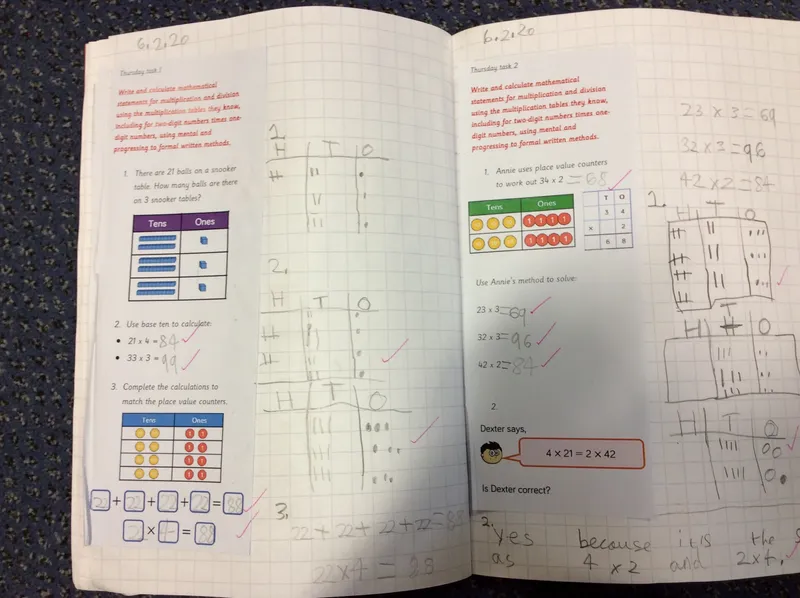 6.2.20
Thursday task 1
Write and calculate mathematical
statements for multiplication and division
using the multiplication tables they know,
including for two-digit numbers times one-
digit numbers, using mental and
progressing to formal written methods.
1. There are 21 balls on a snooker
table. How many balls are there
on 3 snooker tables?
Tens Ones
2. Use base ten to calculate:
• 21 x 4 = 84
• 33 x 3 = 99
3. Complete the calculations to
match the place value counters.
Tens Ones
1 1
1 1
1 1
1 1
22 + 22 + 22 + 22 =
x 4 =
1.
H T O
2.
H T O
H T O
3.
22 + 22 + 22 + 22 =
22 x 4 =
6.2.20
Thursday task 2
Write and calculate mathematical
statements for multiplication and division
using the multiplication tables they know,
including for two-digit numbers times one-
digit numbers, using mental and
progressing to formal written methods.
1. Annie uses place value counters
to work out 34 x 2 = 68
Tens Ones
1 1 1 1
1 1 1 1
T O
3 4
x 2
6 8
Use Annie's method to solve:
23 x 3 = 69
32 x 3 = 96
42 x 2 = 84
2.
Dexter says,
4 x 21 = 2 x 42
Is Dexter correct?
23 x 3 = 69
32 x 3 = 96
42 x 2 = 84
1.
H T O
H T O
H T O
2. yes because it is the
as 4 x 2 and 2x4.